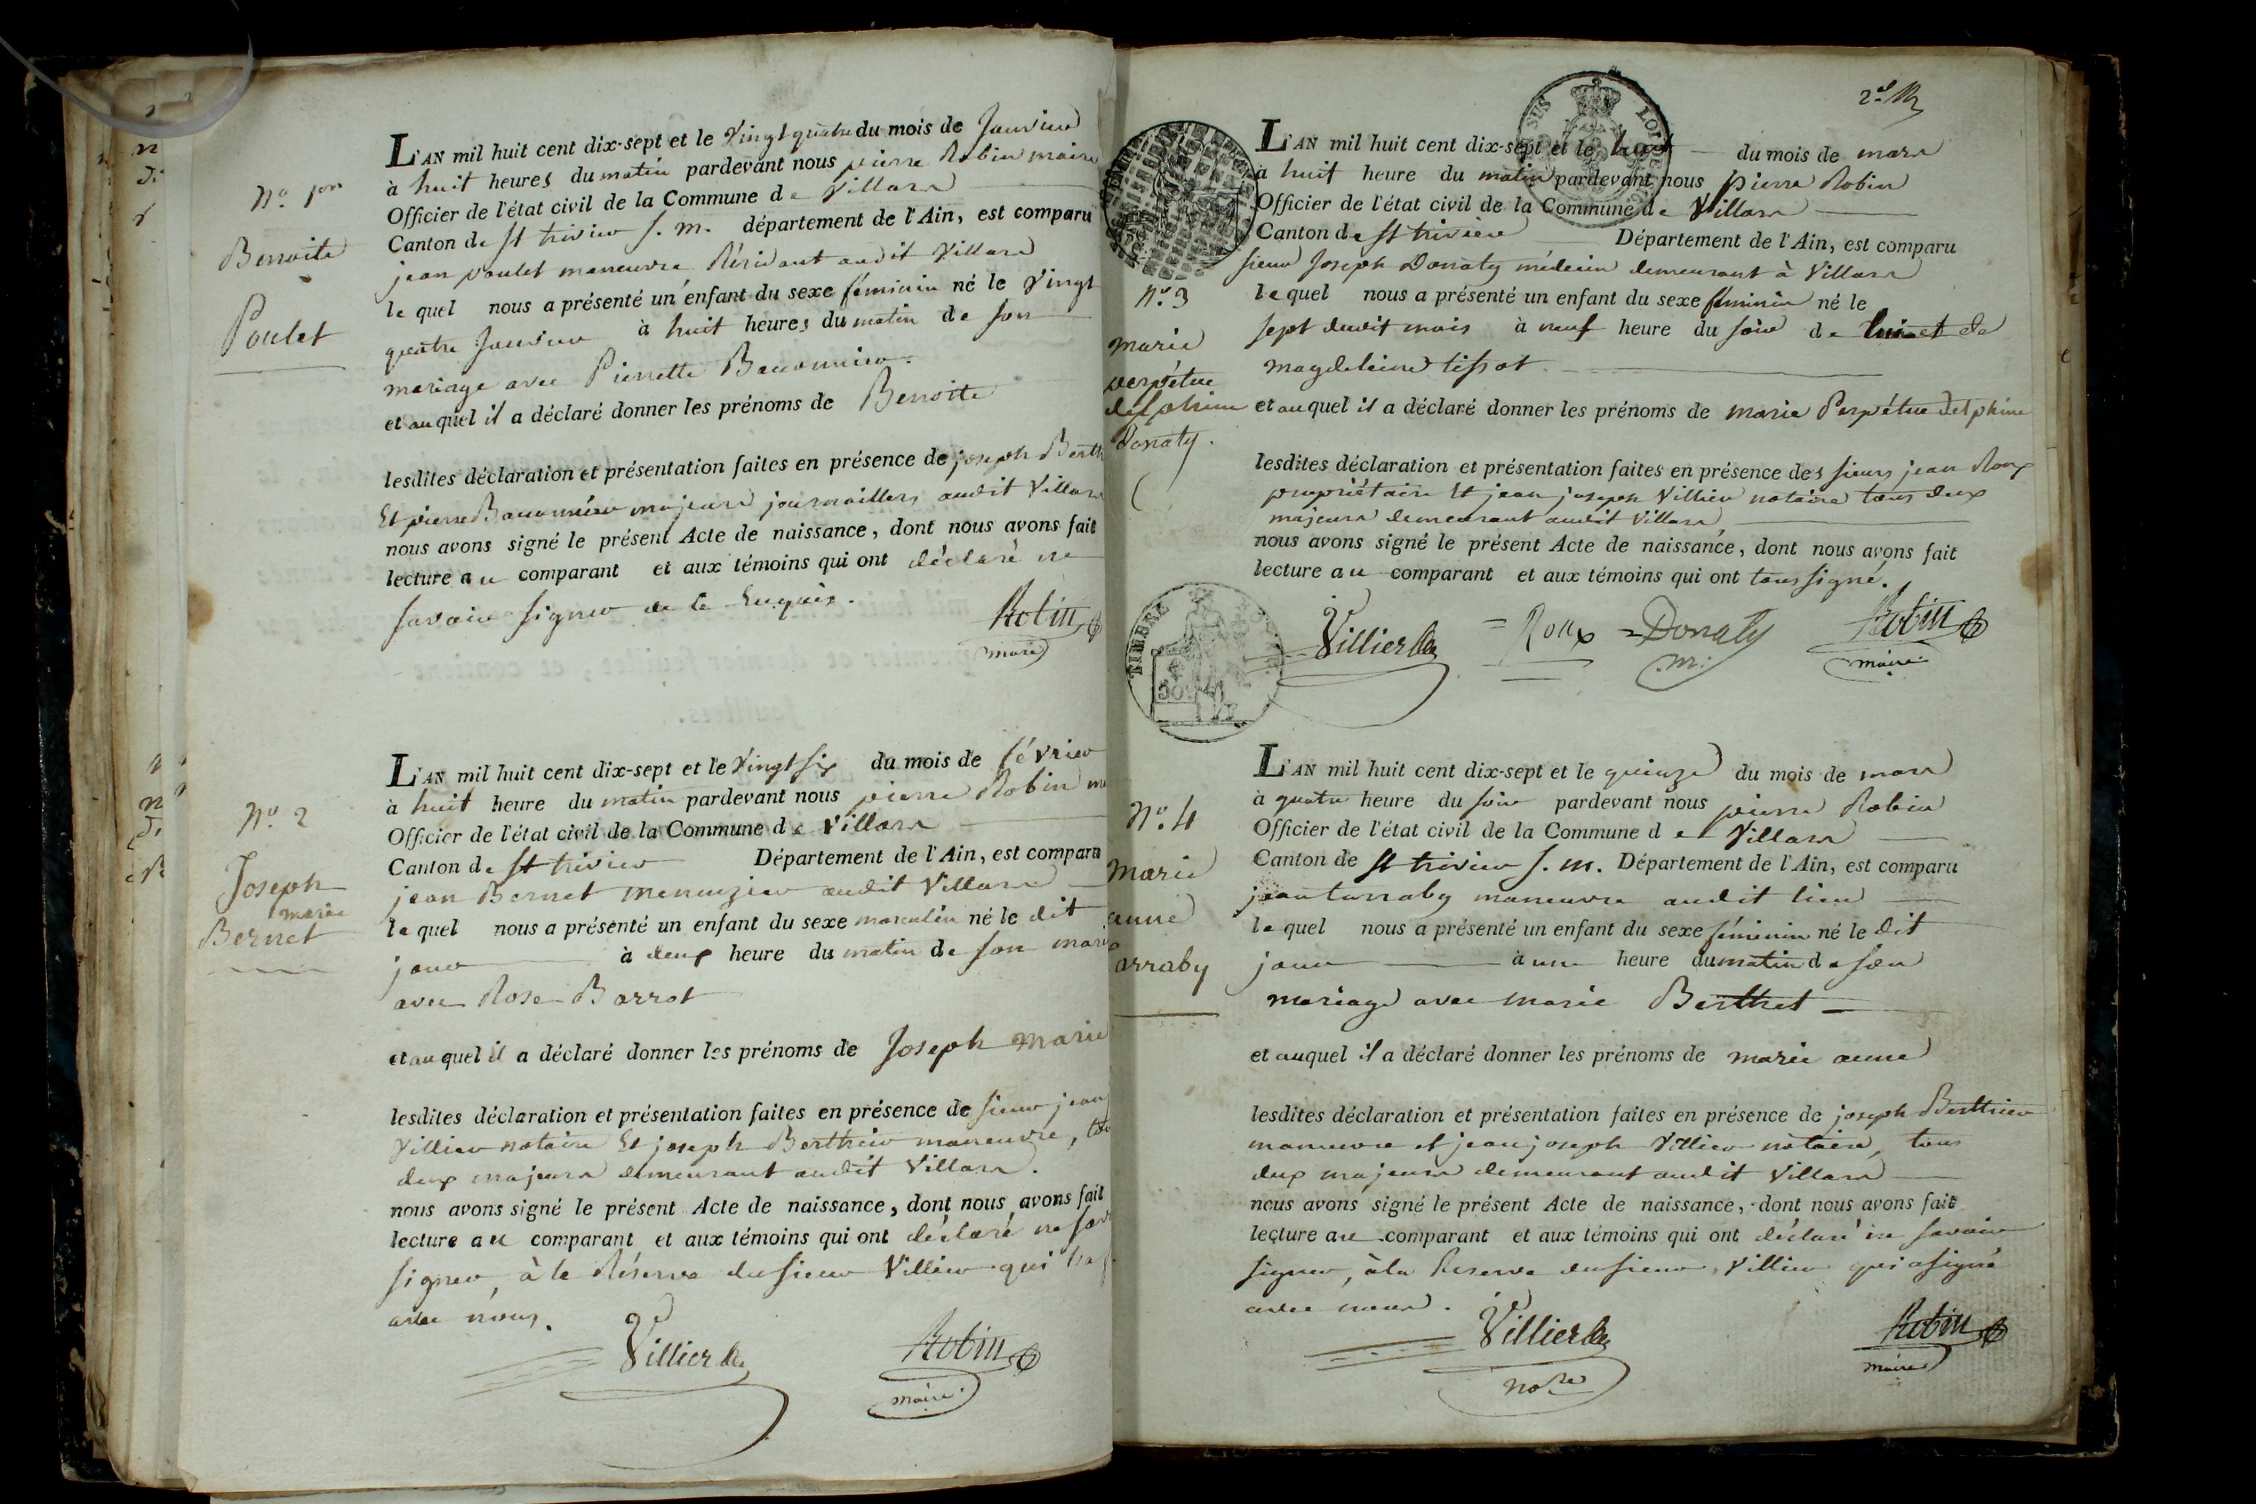 N.o 1er
Benoite
Poulet
L'AN mil huit cent dix-sept et le vingt quatre du mois de Janvier
à huit heures du matin pardevant nous pierre Robin maire
Officier de l'état civil de la Commune de Villars
Canton de St trivier S. M. département de l'Ain, est comparu
jean poulet maneuvre Résidant audit Villars
lequel nous a présenté un enfant du sexe féminin né le Vingt
quatre Janvier à huit heures du matin de son
mariage avec Pierrette Baconnier.
et auquel il a déclaré donner les prénoms de Benoite
lesdites déclaration et présentation faites en présence de joseph Berth
Et pierre Baconnier majeurs journailliers audit Villars
nous avons signé le présent Acte de naissance, dont nous avons fait
lecture au comparant et aux témoins qui ont déclaré ne
savoir signer de ce Enquis.
Robin
maire
N.o 2
Joseph
marie
Bernet
L'AN mil huit cent dix-sept et le Vingt six du mois de février
à huit heure du matin pardevant nous pierre Robin m
Officier de l'état civil de la Commune de Villars
Canton de St trivier Département de l'Ain, est comparu
jean Bernet menuzier audit Villars
lequel nous a présenté un enfant du sexe masculin né le dit
jour à deux heure du matin de son mari
avec Rose Barrot
et auquel il a déclaré donner les prénoms de Joseph Marie
lesdites déclaration et présentation faites en présence de sieur jean
Villier notaire Et joseph Berthier maneuvre, tou
deux majeurs demeurant audit Villars.
nous avons signé le présent Acte de naissance, dont nous avons fait
lecture au comparant et aux témoins qui ont déclaré ne sav
signer, à la Réserve du sieur Villier qui
avec nous.
Villier
Robin
maire
2.d
SUS LOI
N.o 3
marie
perpétue
delphine
Donaty.
L'AN mil huit cent dix-sept et le huit du mois de mars
à huit heure du matin pardevant nous pierre Robin
Officier de l'état civil de la Commune de Villars
Canton de St trivier Département de l'Ain, est comparu
sieur Joseph Donaty médecin demeurant à Villars
lequel nous a présenté un enfant du sexe féminin né le
sept dudit mois à neuf heure du soir de lui et de
magdeleine tissot
et auquel il a déclaré donner les prénoms de marie Perpétue delphine
lesdites déclaration et présentation faites en présence des sieurs jean Roux
propriétaire Et jean joseph Villier notaire tous deux
majeurs demeurant audit Villars
nous avons signé le présent Acte de naissance, dont nous avons fait
lecture au comparant et aux témoins qui ont tous signé.
TIMBRE
Villier = Roux = Donaty Robin
m. maire
N.o 4
Marie
anne
arraby
L'AN mil huit cent dix-sept et le quinze du mois de mars
à quatre heure du soir pardevant nous pierre Robin
Officier de l'état civil de la Commune de Villars
Canton de St trivier S. M. Département de l'Ain, est comparu
jean tarraby maneuvre audit lieu
lequel nous a présenté un enfant du sexe féminin né le dit
jour à une heure du matin de son
mariage avec marie Berthet
et auquel il a déclaré donner les prénoms de marie anne
lesdites déclaration et présentation faites en présence de joseph Berthier
maneuvre et jean joseph Villier notaire, tous
deux majeurs demeurant audit Villars
nous avons signé le présent Acte de naissance, dont nous avons fait
lecture au comparant et aux témoins qui ont déclaré ne savoir
signer, à la Reserve du sieur Villier qui a signé
avec nous.
Villier
Robin
nore
maire